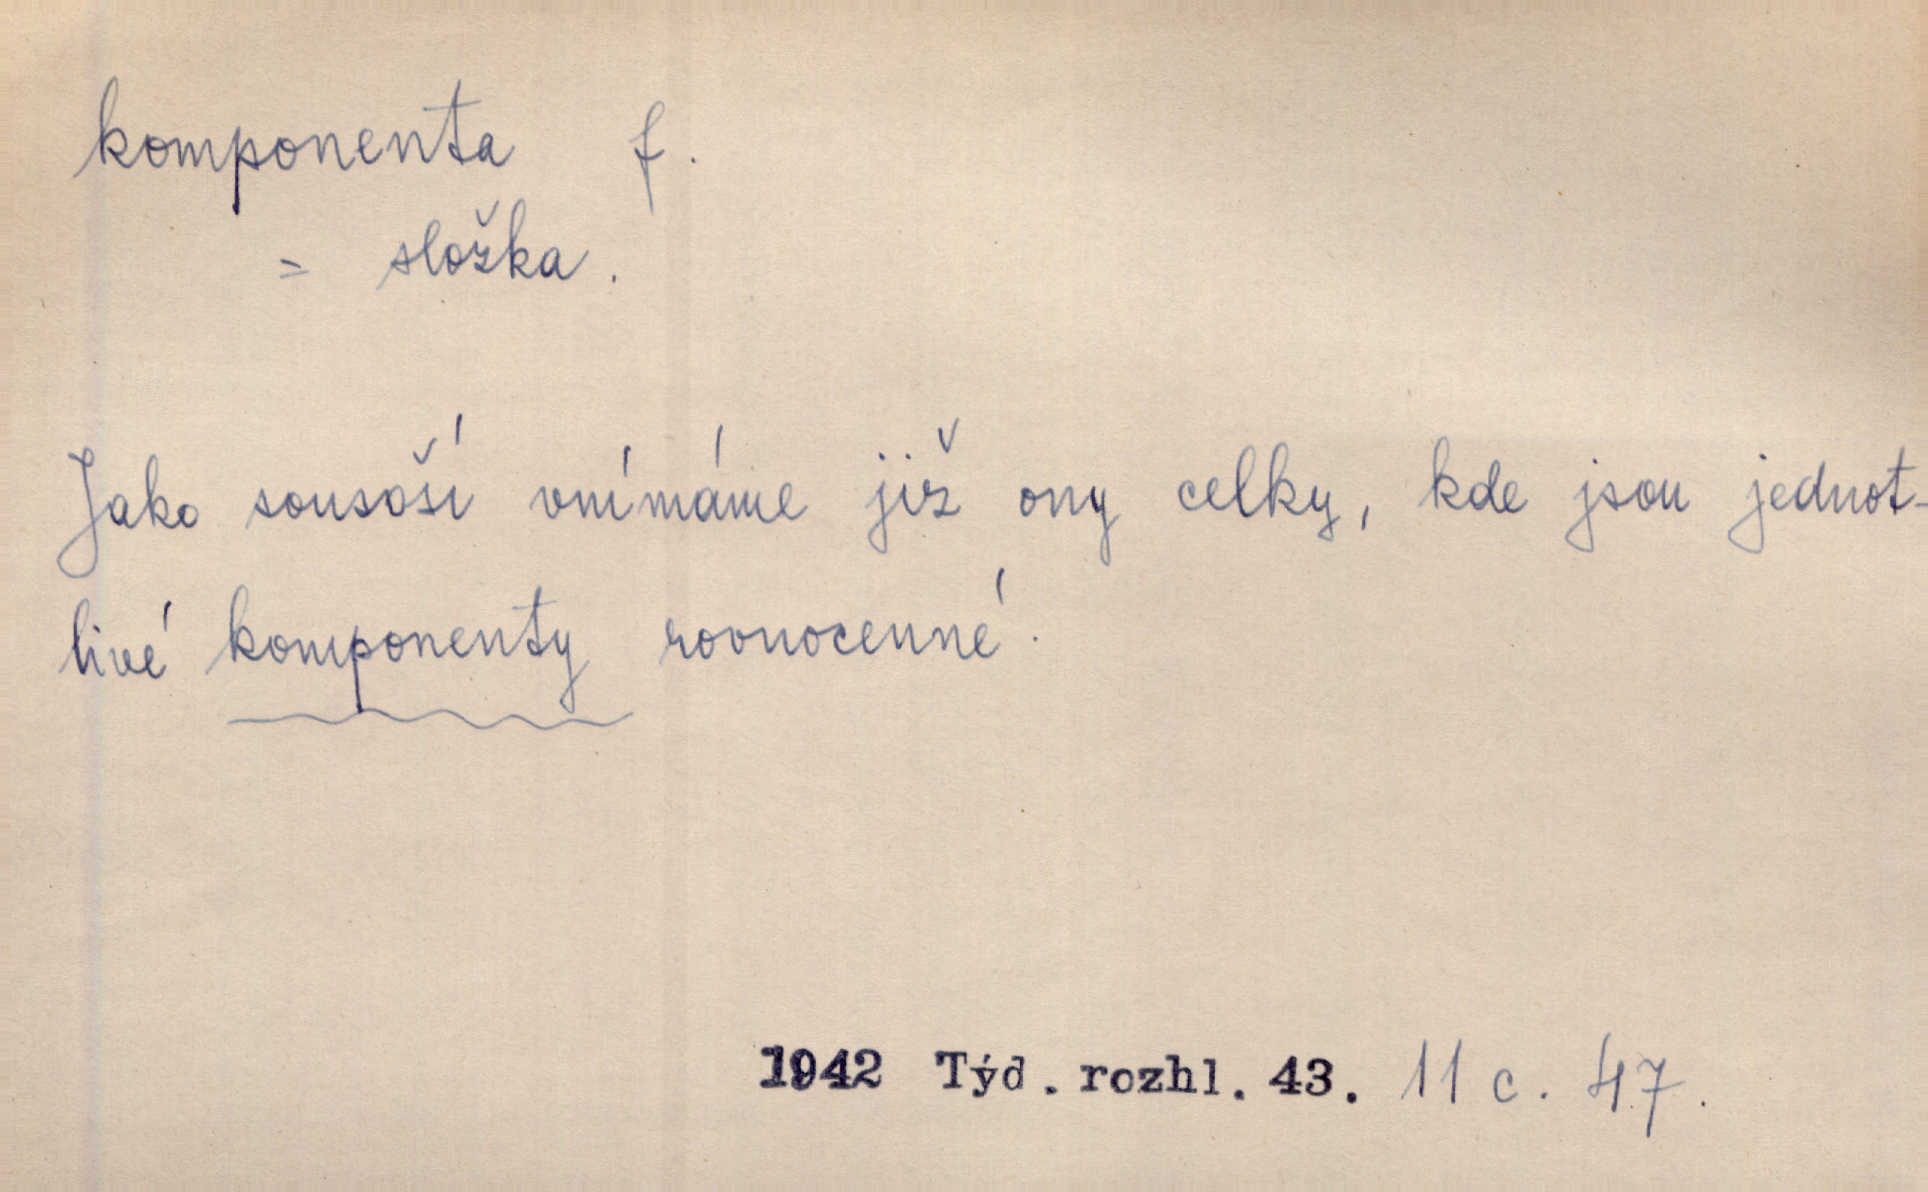 komponenta f.
= složka.
Jako sousoší vnímáme již ony celky, kde jsou jednot-
livé komponenty rovnocenné.
1942 Týd. rozhl. 43. 11 c. 47.